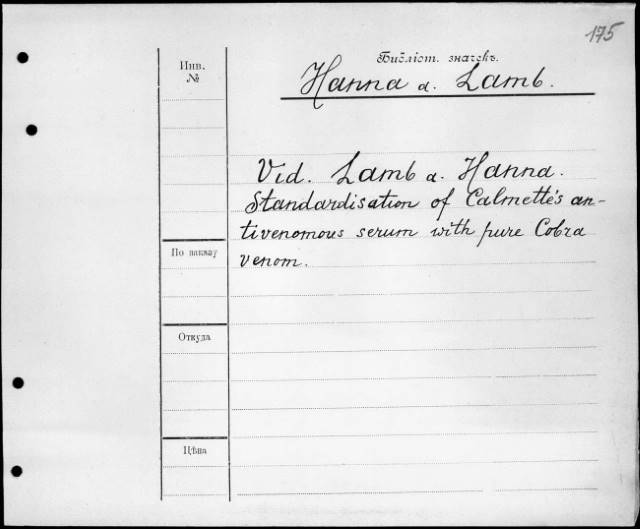 175
Библіот. значекъ.
Инв.
№
Hanna a. Lamb.
Vid. Lamb a. Hanna.
Standardisation of Calmette's an-
tivenomous serum with pure Cobra
venom.
По наказу
Откуда
Цѣна